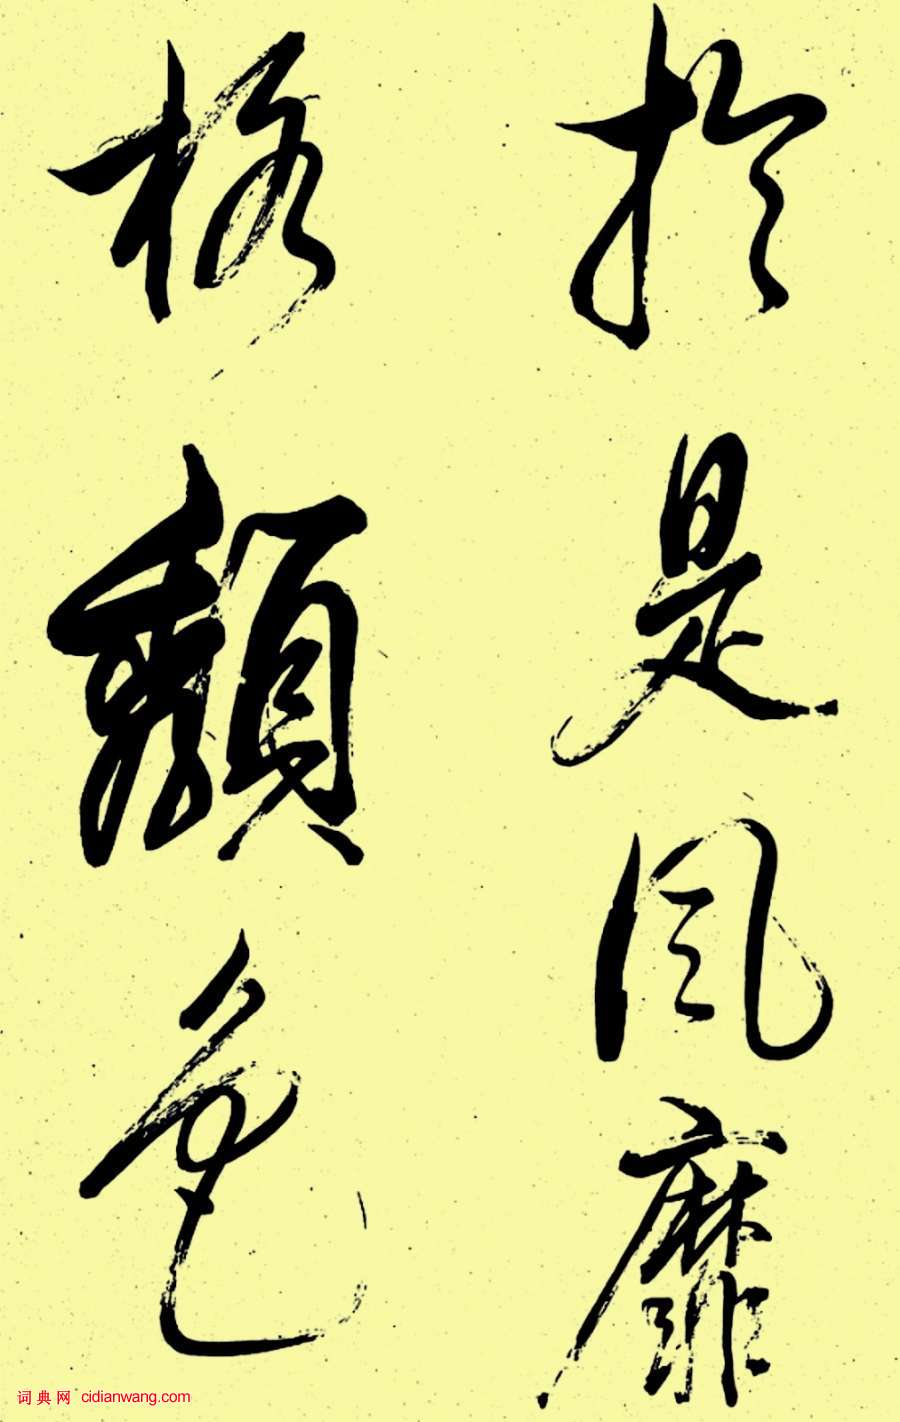 於是風靡
格頹色
词典网 cidianwang.com